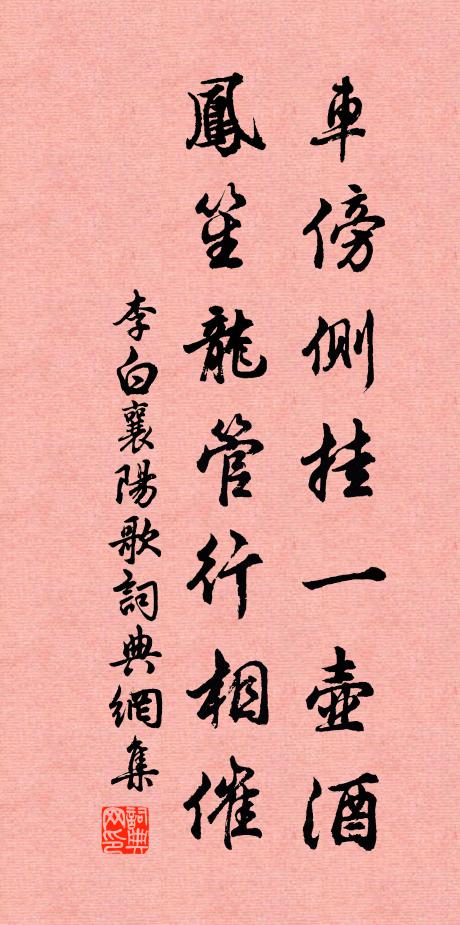 車傍側挂一壺酒
鳳笙龍管行相催
李白襄陽歌詞典網集
詞典网印